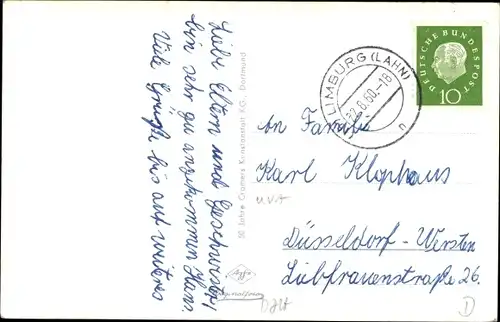 Liebe Eltern und Geschwister!
bin sehr gu angekommen Hans.
Viele Grüße bis auf weiteres
50 Jahre Cramers Kunstanstalt KG., Dortmund
Agfa
LIMBURG (LAHN)
22.8.60.-18
u
DEUTSCHE BUNDESPOST
10
An Familie
Karl Klophaus
Düsseldorf-Wersten
Liebfrauenstraße 26.
D